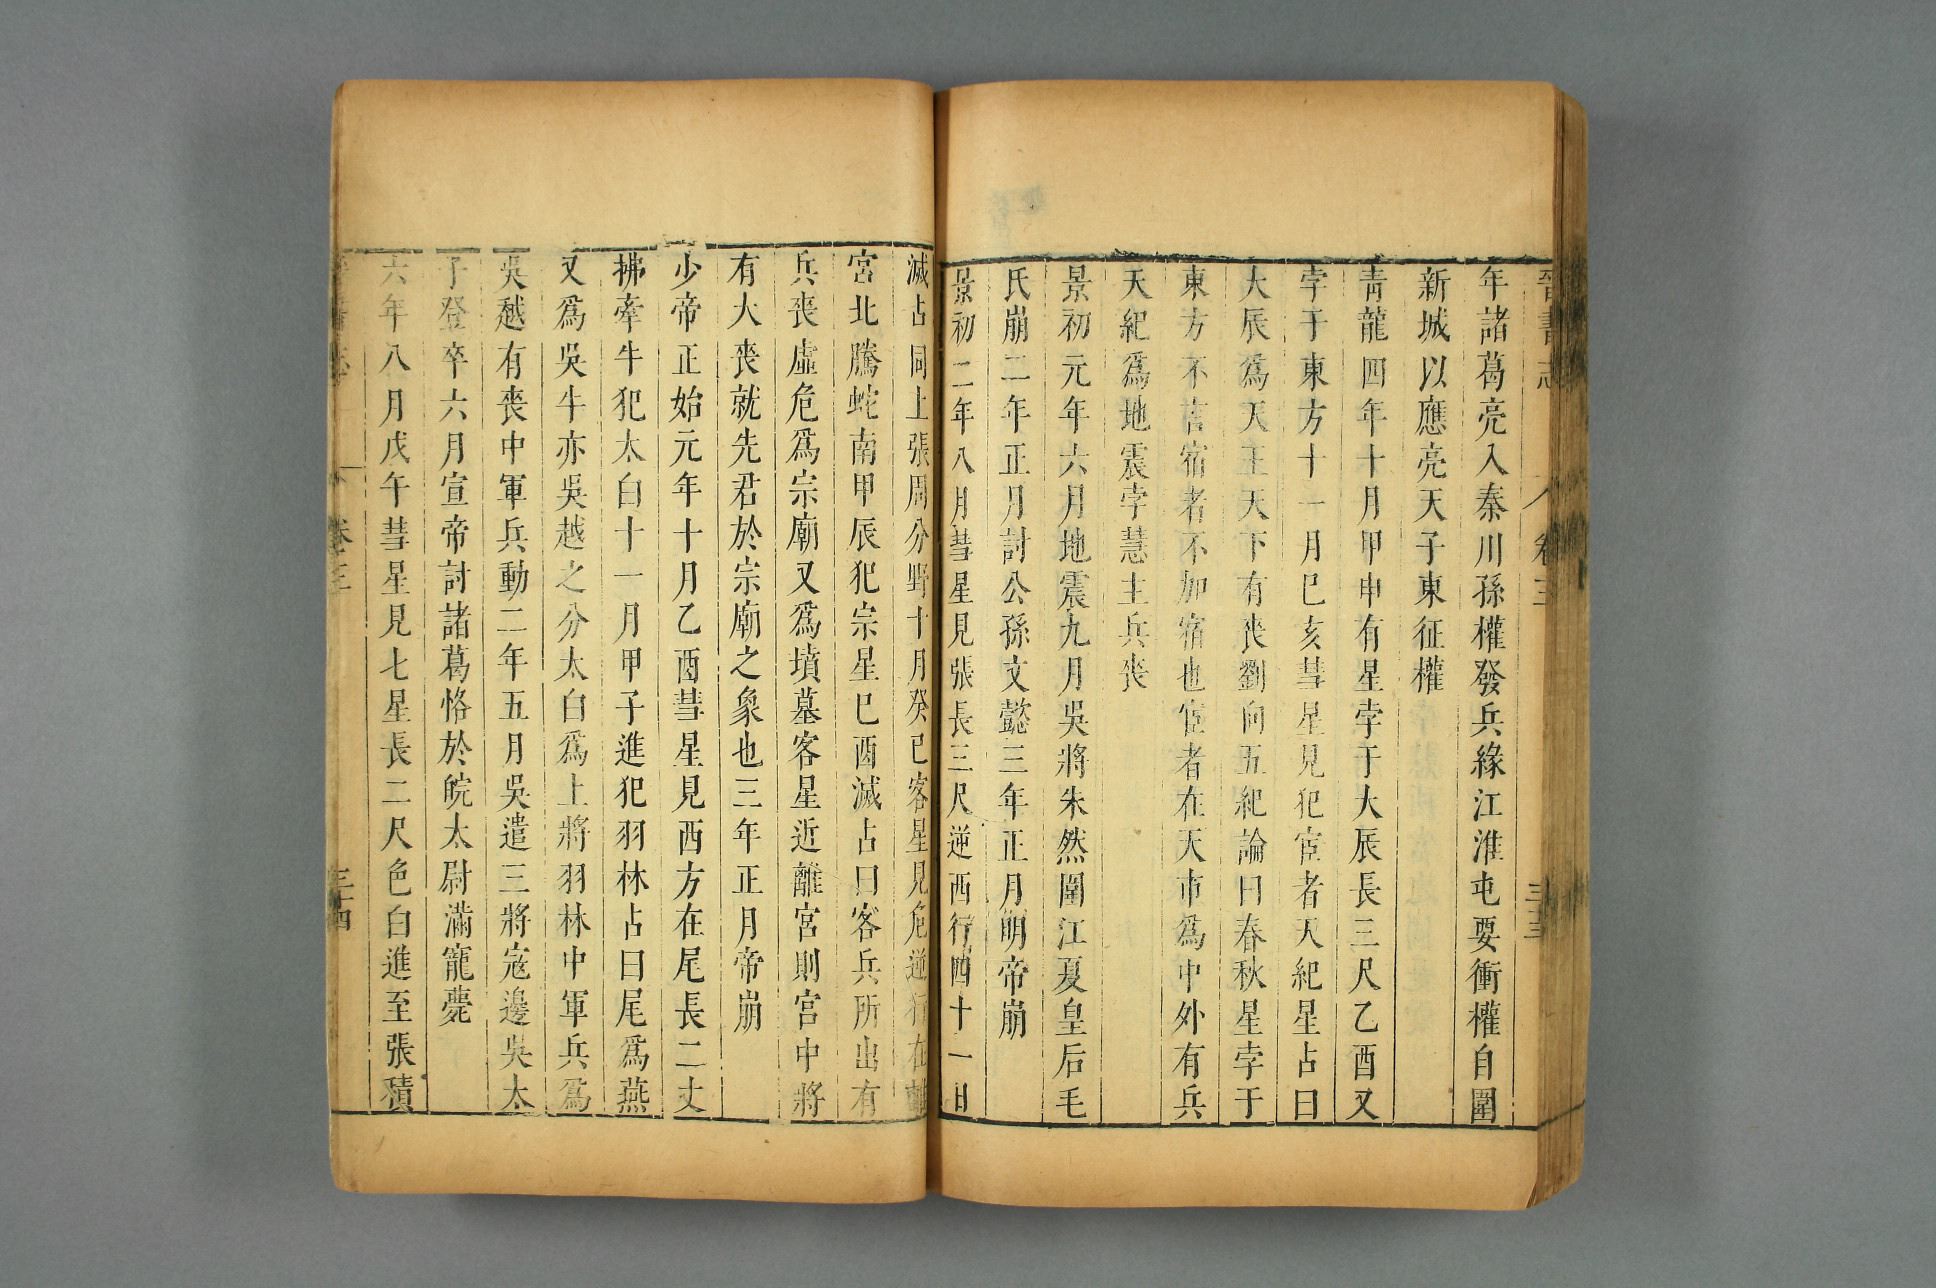 晉書志 卷三 三十三
年諸葛亮入秦川孫權發兵緣江淮屯要衝權自圍
新城以應亮天子東征權
靑龍四年十月甲申有星孛于大辰長三尺乙酉又
孛于東方十一月巳亥彗星見犯宦者天紀星占曰
大辰爲天王天下有喪劉向五紀論曰春秋星孛于
東方不言宿者不加宿也宦者在天市爲中外有兵
天紀爲地震孛慧主兵喪
景初元年六月地震九月吳將朱然圍江夏皇后毛
氏崩二年正月討公孫文懿三年正月明帝崩
景初二年八月彗星見張長三尺逆西行四十一日
滅占同上張周分野十月癸巳客星見危逆行在離
宮北騰蛇南甲辰犯宗星巳酉滅占曰客兵所出有
兵喪虛危爲宗廟又爲墳墓客星近離宮則宮中將
有大喪就先君於宗廟之象也三年正月帝崩
少帝正始元年十月乙酉彗星見西方在尾長二丈
拂牽牛犯太白十一月甲子進犯羽林占曰尾爲燕
又爲吳牛亦吳越之分太白爲上將羽林中軍兵爲
吳越有喪中軍兵動二年五月吳遣三將寇邊吳太
子登卒六月宣帝討諸葛恪於皖太尉滿寵薨
六年八月戊午彗星見七星長二尺色白進至張積
卷三 三十四